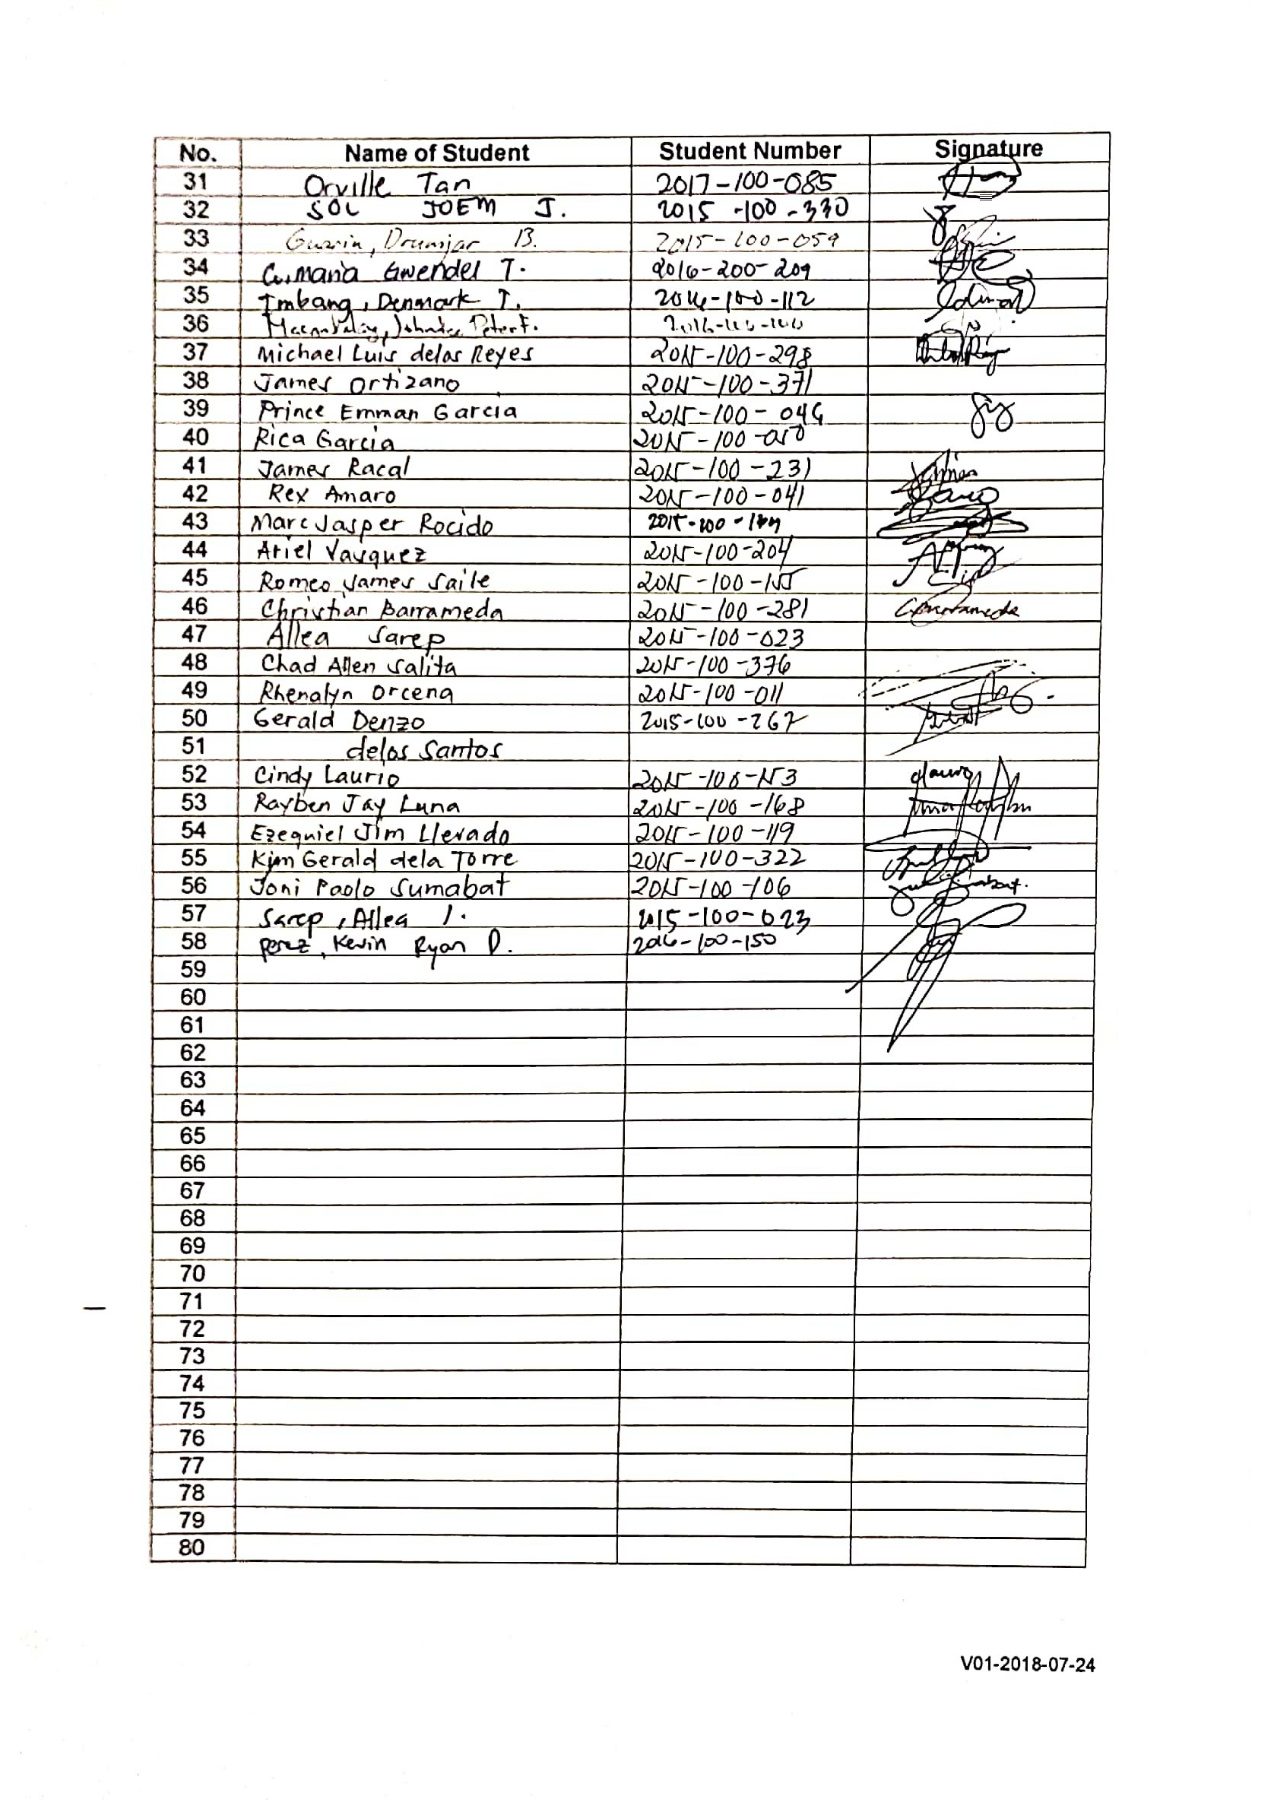 No. Name of Student Student Number Signature
31 Orville Tan 2017-100-085
32 SOL JOEM J. 2015-100-330
33 B. 2015-100-059
34 Gwendel T. 2016-200-209
35 Imbang, Denmark T. 2016-100-112
36
37 Michael Luis delos Reyes 2015-100-298
38 James Ortizano 2015-100-371
39 Prince Emman Garcia 2015-100-046
40 Rica Garcia 2015-100-010
41 James Racal 2015-100-231
42 Rex Amaro 2015-100-041
43 Marc Jasper Rocido
44 Ariel Vasquez 2015-100-204
45 Romeo James Saile 2015-100-155
46 Christian Barrameda 2015-100-281
47 Allea Sarep 2015-100-023
48 Chad Allen Salita 2015-100-376
49 Rhenalyn Orcena 2015-100-011
50 Gerald Denzo 2015-100-267
51 delos Santos
52 Cindy Laurio 2015-100-153
53 Rayben Jay Luna 2015-100-168
54 Ezequiel Jim Llevado 2015-100-119
55 Kim Gerald dela Torre 2015-100-322
56 Joni Paolo Sumabat 2015-100-106
57 Sarep, Allea I. 2015-100-023
58 Perez, Kevin Ryan D. 2016-100-150
59
60
61
62
63
64
65
66
67
68
69
70
71
72
73
74
75
76
77
78
79
80
V01-2018-07-24